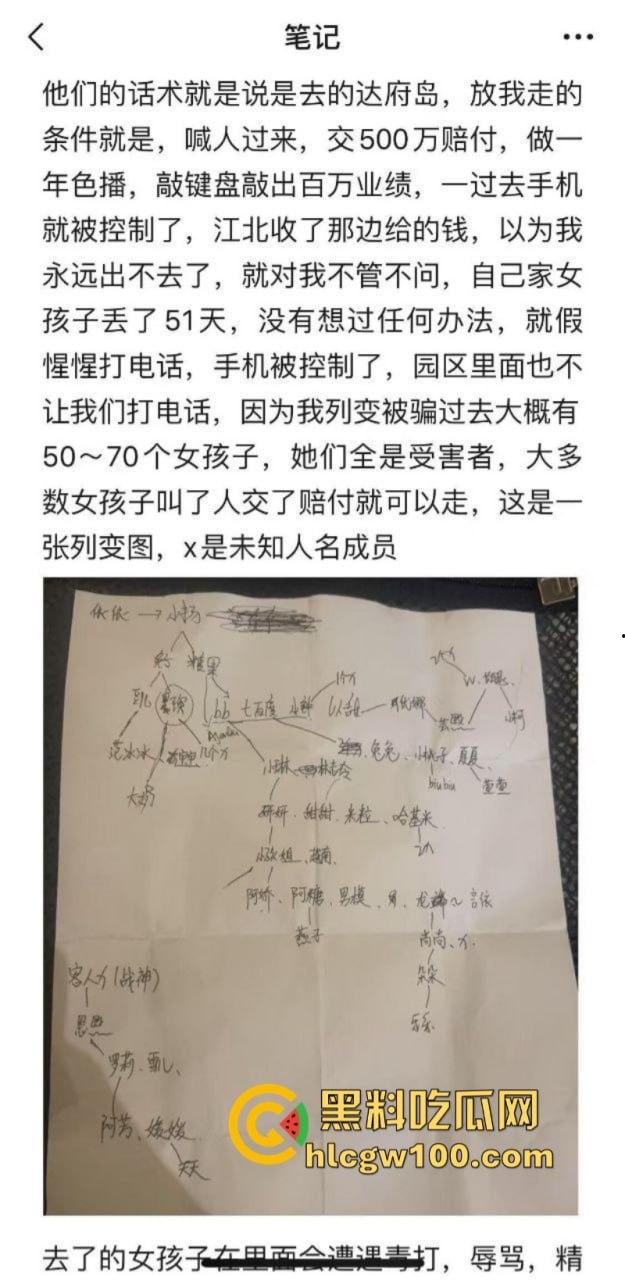 笔记
他们的话术就是说是去的达府岛，放我走的
条件就是，喊人过来，交500万赔付，做一
年色播，敲键盘敲出百万业绩，一过去手机
就被控制了，江北收了那边给的钱，以为我
永远出不去了，就对我不管不问，自己家女
孩子丢了51天，没有想过任何办法，就假
惺惺打电话，手机被控制了，园区里面也不
让我们打电话，因为我列变被骗过去大概有
50～70个女孩子，她们全是受害者，大多
数女孩子叫了人交了赔付就可以走，这是一
张列变图，x是未知人名成员
依依 → 小杨
糖果
bb 七百度
范冰冰
兔兔、小桃子、夏夏
biubiu
小琳
研研、甜甜、米粒、哈基米
越南
阿娇、阿糖、男模
燕子
尚尚、x.
朵朵
乐乐
客人x (战神)
思思
罗莉
阿芳、媛媛
天天
黑料吃瓜网
hlcgw100.com
去了的女孩子在里面会遭遇毒打，辱骂，精